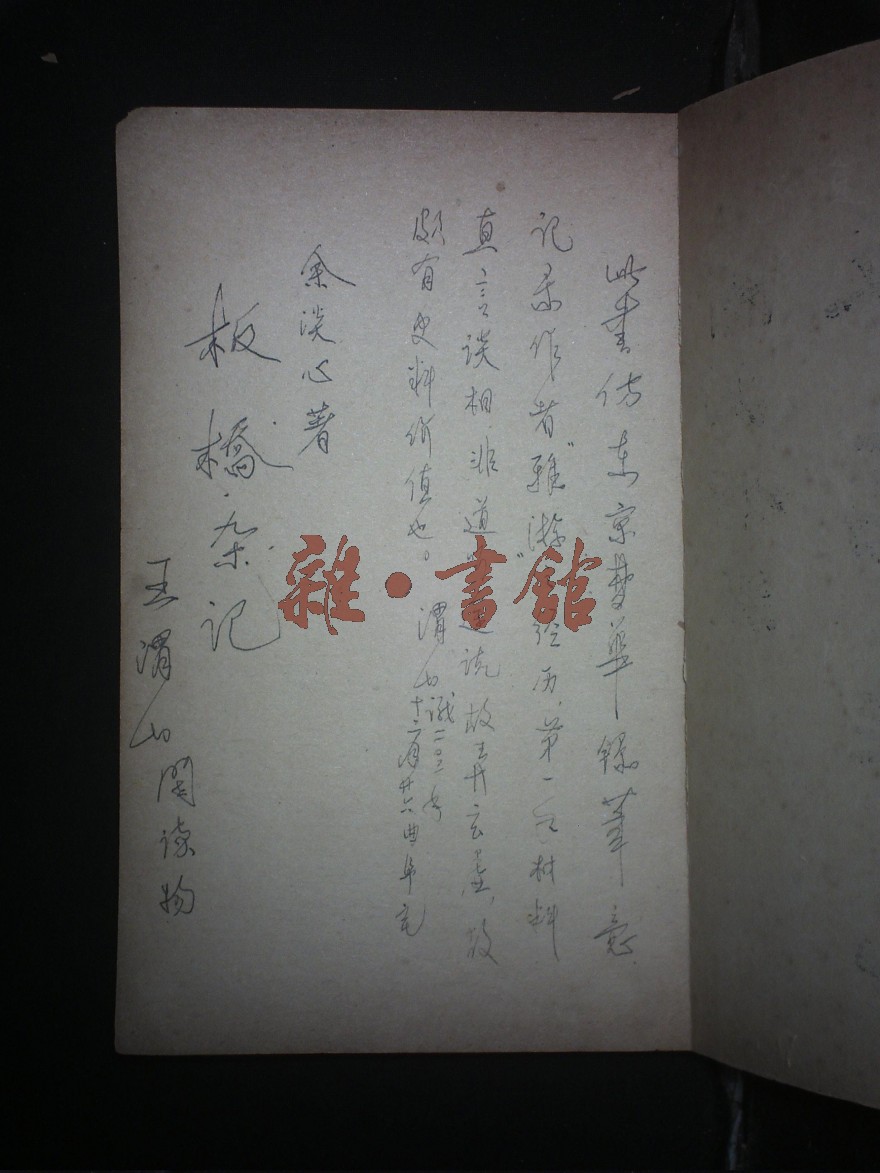 此书仿东京梦华录笔意
记录作者"雅游"经历，第一手材料
直言谈相非道 说故 去 故
颇有史料价值也。
渭山识二〇〇二年
十二月廿六曲阜
余淡心著
板桥·杂记
王渭山阅读物
雜·書館